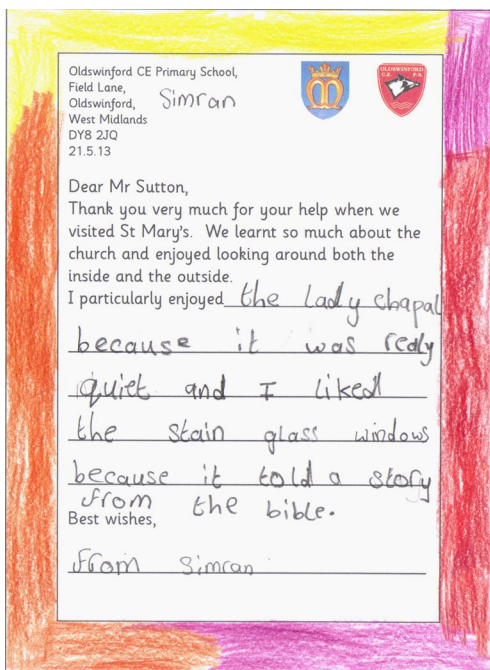 Oldswinford CE Primary School,
Field Lane,
Oldswinford,
Simran
West Midlands
DY8 2JQ
21.5.13
OLDSWINFORD
C.E. P.S.
Dear Mr Sutton,
Thank you very much for your help when we
visited St Mary's. We learnt so much about the
church and enjoyed looking around both the
inside and the outside.
I particularly enjoyed the lady chapal
because it was realy
quiet and I liked
the stain glass windows
because it told a story
from the bible.
Best wishes,
from Simran